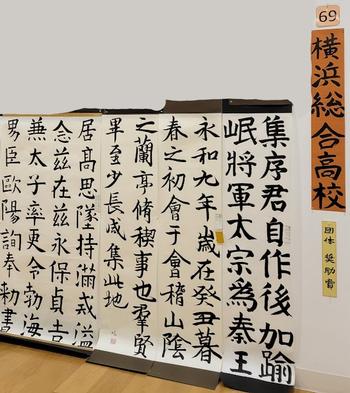 69
横浜総合高校
団体 奨励賞
集序君自作後加踰
岷將軍太宗為秦王
永和九年歳在癸丑暮
春之初會于會稽山陰
之蘭亭脩稧事也羣賢
畢至少長咸集此地
居髙思墜持滿戒溢
念茲在茲永保貞吉
兼太子率更令勃海
男臣歐陽詢奉勅書